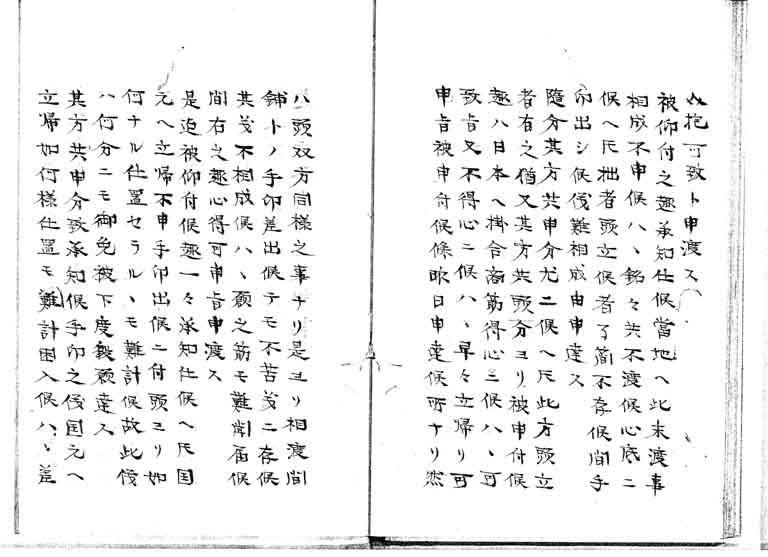 抱可致ト申渡ス
被仰付之趣承知仕候當地ヘ此末渡事
相成不申候ハヽ銘々共不渡候心底ニ
候ヘ𪜈拙者頭立候者了簡不存候間手
印出シ候儀難相成由申達ス
隨分其方共申分尤ニ候ヘ𪜈此方頭立
者有之儀又其方共頭分ヨリ被申付候
趣ハ日本ヘ掛合商筋得心ニ候ハヽ可
致旨又不得心ニ候ハヽ早々立帰リ可
申旨被申付候條昨日申達候所ナリ然
ハ頭双方同様之事ナリ是ヨリ相渡間
鋪トノ手印差出候テモ不苦義ニ存候
其義不相成候ハヽ願之筋モ難聞届候
間右之趣心得可申旨申渡ス
是迄被仰付候趣一々承知仕候ヘ𪜈国
元ヘ立帰不申手印出候ニ付頭ヨリ如
何ナル仕置セラルヽモ難計候故此儀
ハ何分ニモ御免被下度段願達ス
其方共申分致承知候手印之儀国元ヘ
立帰如何様仕置モ難計困入候ハヽ差